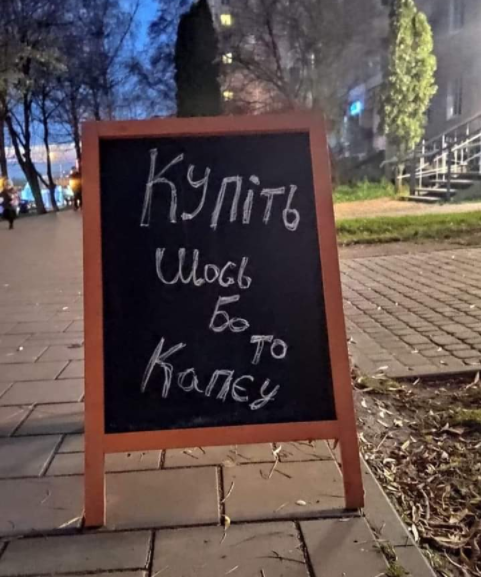 Купіть
щось
бо
то
Капєу